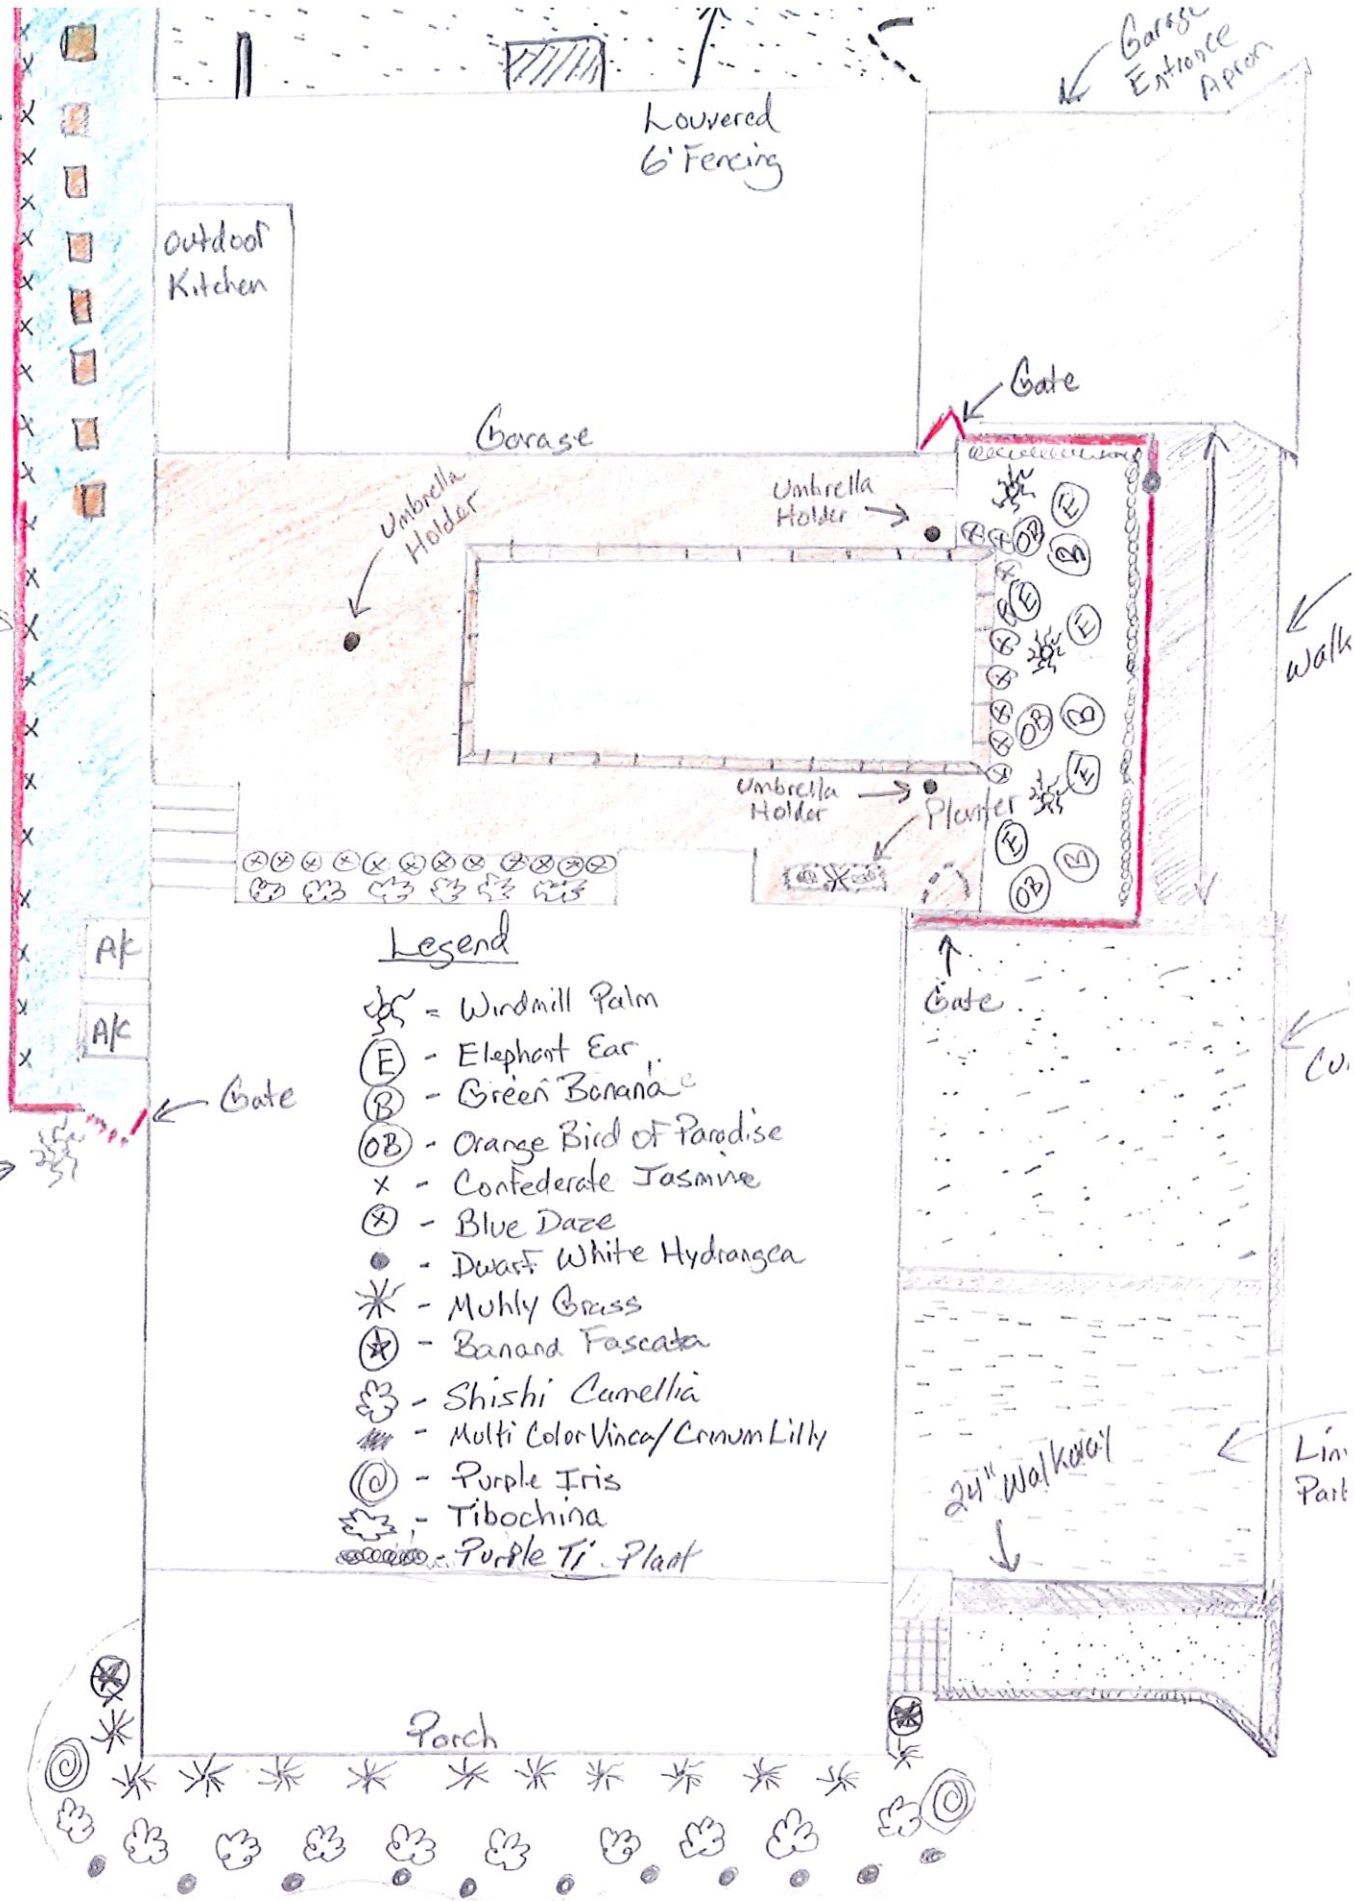 Garage
Entrance
Apron
Louvered
6' Fencing
Outdoor
Kitchen
Gate
Garage
Umbrella
Holder
Umbrella
Holder
E
OB
B
E
B
E
Walk
OB
B
E
Umbrella
Holder
Planter
E
B
OB
A/C
A/C
Gate
Gate
Cu
Legend
= Windmill Palm
E - Elephant Ear
B - Green Banana
OB - Orange Bird of Paradise
x - Confederate Jasmine
- Blue Daze
- Dwarf White Hydrangea
- Muhly Grass
- Banand Fascata
- Shishi Camellia
- Multi Color Vinca/Crinum Lilly
- Purple Iris
- Tibochina
- Purple Ti Plant
24" Walkway
Lin
Part
Porch